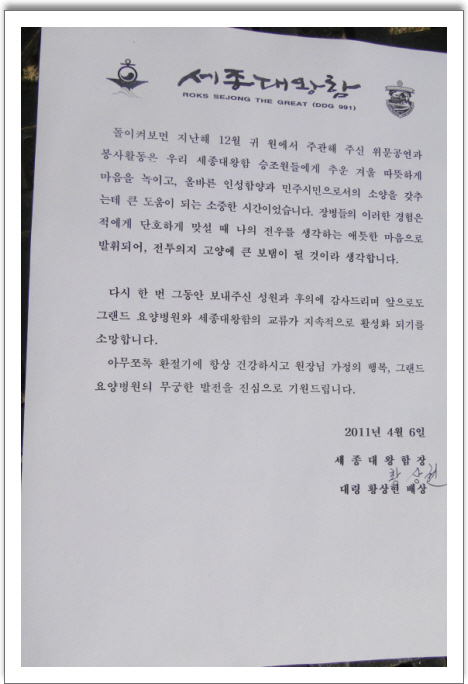 세종대왕함
ROKS SEJONG THE GREAT (DDG 991)
돌이켜보면 지난해 12월 귀 원에서 주관해 주신 위문공연과
봉사활동은 우리 세종대왕함 승조원들에게 추운 겨울 따뜻하게
마음을 녹이고, 올바른 인성함양과 민주시민으로서의 소양을 갖추
는데 큰 도움이 되는 소중한 시간이었습니다. 장병들의 이러한 경험은
적에게 단호하게 맞설 때 나의 전우를 생각하는 애틋한 마음으로
발휘되어, 전투의지 고양에 큰 보탬이 될 것이라 생각합니다.
다시 한 번 그동안 보내주신 성원과 후의에 감사드리며 앞으로도
그랜드 요양병원와 세종대왕함의 교류가 지속적으로 활성화 되기를
소망합니다.
아무쪼록 환절기에 항상 건강하시고 원장님 가정의 행복, 그랜드
요양병원의 무궁한 발전을 진심으로 기원드립니다.
2011년 4월 6일
세 종 대 왕 함 장
대령 황상현 배상